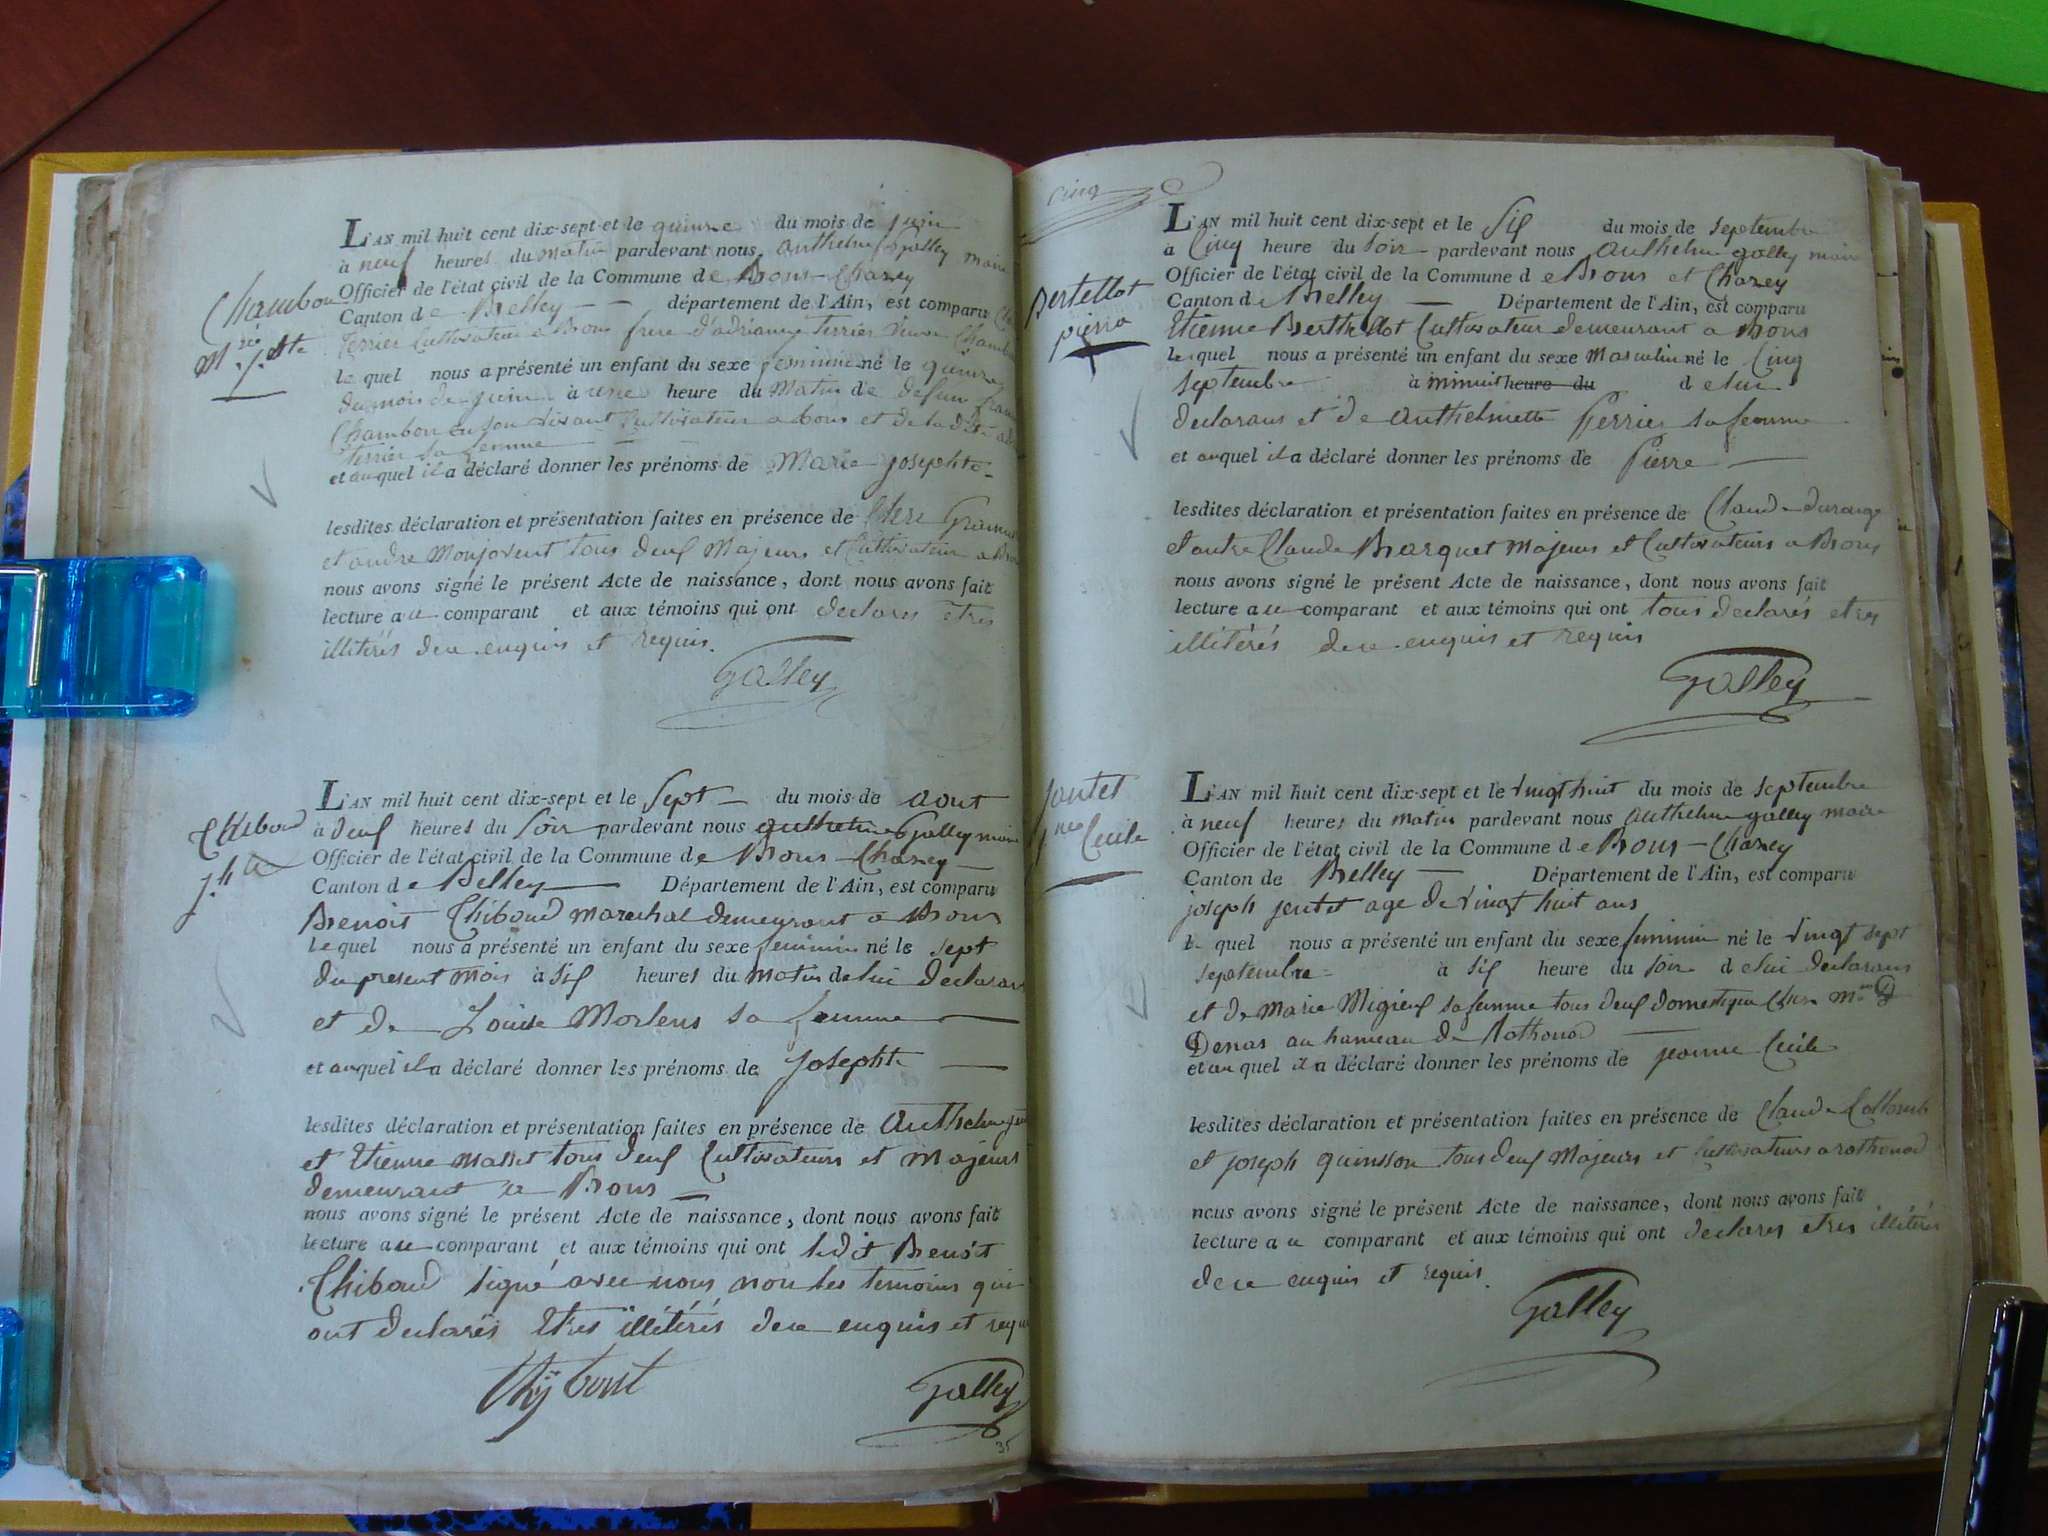 L'AN mil huit cent dix-sept et le quinze du mois de juin
à neuf heures du matin pardevant nous, anthelme Galley maire
Officier de l'état civil de la Commune de Bons-Chazey
Canton de Belley département de l'Ain, est comparu
Chambon
M.rie j.phte
terrier Cultivateur a Bons frere d'adrianne terrier veuve Chambon
le quel nous a présenté un enfant du sexe feminin né le quinze
du mois de juin à une heure du Matin de defun
Chambon en son vivant Cultivateur a bons et de la dite
terrier sa femme
et auquel il a déclaré donner les prénoms de Marie josephte
lesdites déclaration et présentation faites en présence de
et andre Monjovent tous deux Majeurs et Cultivateur a Bons
nous avons signé le présent Acte de naissance, dont nous avons fait
lecture au comparant et aux témoins qui ont declares etres
illitérés de ce enquis et requis.
Galley
L'AN mil huit cent dix-sept et le Sept du mois de aout
à deux heures du Soir pardevant nous anthelme Galley maire
Thiboud
j.hte
Officier de l'état civil de la Commune de Bons-Chazey
Canton de Belley Département de l'Ain, est comparu
Benoit Thiboud marechal demeurant a Bons
le quel nous a présenté un enfant du sexe feminin né le sept
du present mois à six heures du matin de lui declarant
et de Louise Mortens sa femme
et auquel il a déclaré donner les prénoms de Josephte
lesdites déclaration et présentation faites en présence de anthelme
et Etienne Masset tous deux Cultivateurs et majeurs
demeurant a Bons
nous avons signé le présent Acte de naissance, dont nous avons fait
lecture au comparant et aux témoins qui ont ledit Benoit
Thiboud signé avec nous non les temoins qui
ont declarés Etres illitérés de ce enquis et requis
Thyboud
Galley
35
cinq
L'AN mil huit cent dix-sept et le Six du mois de septembre
à Cinq heure du Soir pardevant nous anthelme galley maire
Officier de l'état civil de la Commune de Bons et Chazey
Bertellot
pierre
Canton de Belley Département de l'Ain, est comparu
Etienne Berthellot Cultivateur demeurant a Bons
lequel nous a présenté un enfant du sexe Masculin né le Cinq
septembre à minuit heure du de lui
declarans et de anthelmette Perrier sa femme
et auquel il a déclaré donner les prénoms de Pierre
lesdites déclaration et présentation faites en présence de Claude durange
et autre Claude Barquet majeurs et Cultivateurs a Bons
nous avons signé le présent Acte de naissance, dont nous avons fait
lecture au comparant et aux témoins qui ont tous declarés etres
illitérés de ce enquis et requis
Galley
joutet
j.ne Cecile
L'AN mil huit cent dix-sept et le vingt huit du mois de septembre
à neuf heures du matin pardevant nous anthelme galley maire
Officier de l'état civil de la Commune de Bons-Chazey
Canton de Belley Département de l'Ain, est comparu
joseph joutet age de vingt huit ans
le quel nous a présenté un enfant du sexe feminin né le vingt sept
septembre à six heure du soir de lui declarans
et de Marie Migieux sa femme tous deux domestique Chez
Denas au hameau de Rothonod
et au quel il a déclaré donner les prénoms de jeanne Cecile
lesdites déclaration et présentation faites en présence de Claude Collomb
et joseph quinsson tous deux Majeurs et Cultivateurs a rothonod
nous avons signé le présent Acte de naissance, dont nous avons fait
lecture au comparant et aux témoins qui ont declares etres illitérés
de ce enquis et requis.
Galley